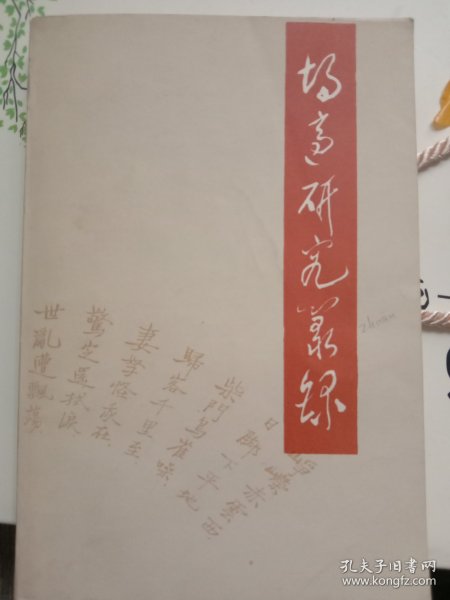 研究叢錄
zhuan
崢嶸赤雲西
日腳下平地
柴門鳥雀噪
歸客千里至
妻孥怪我在
驚定還拭淚
世亂遭飄蕩
孔夫子旧书网
www.kongfz.com